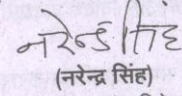 नरेन्द्र सिंह
(नरेन्द्र सिंह)